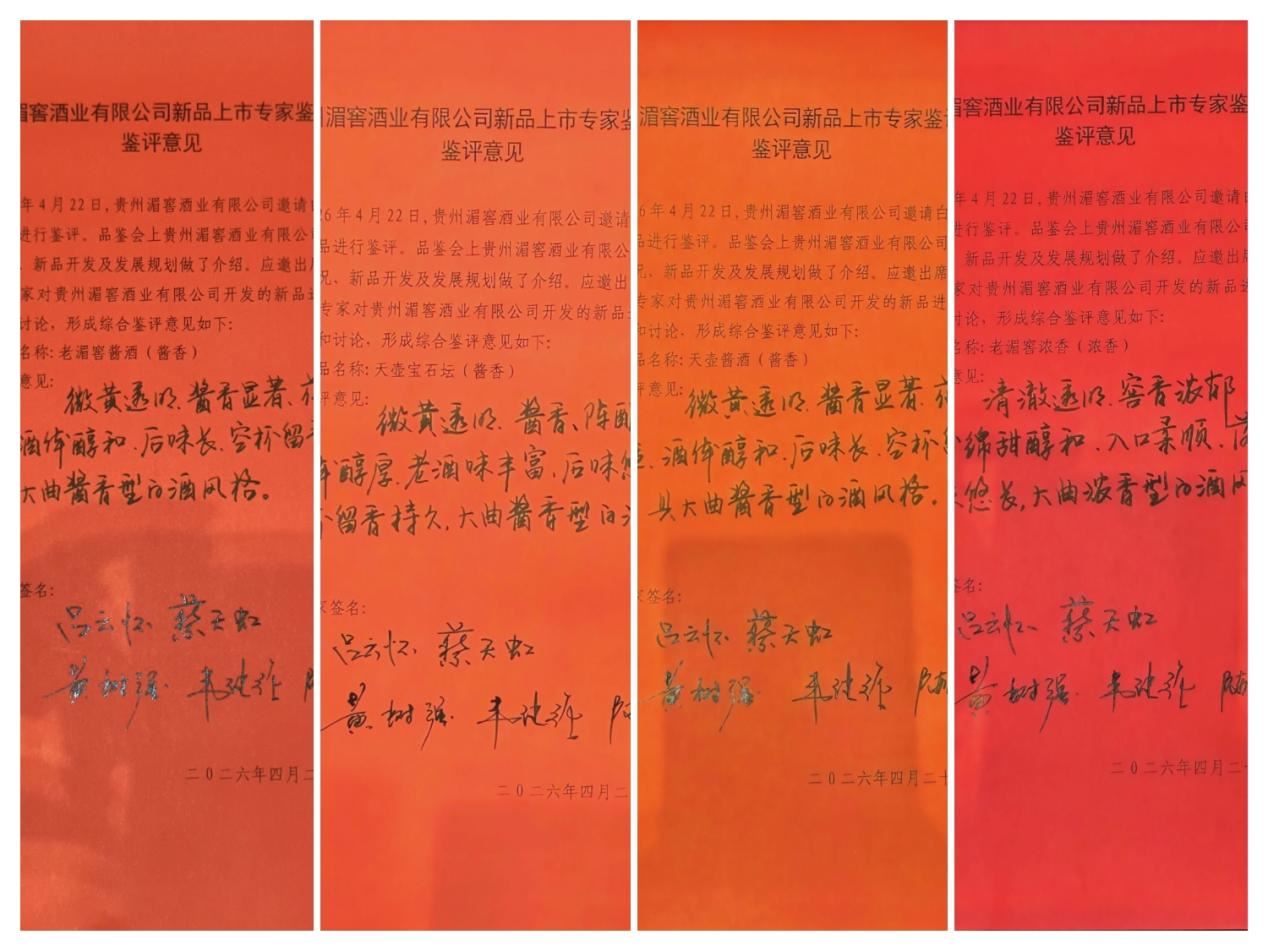 湄窖酒业有限公司新品上市专家鉴
鉴评意见
年4月22日,贵州湄窖酒业有限公司邀请
进行鉴评。品鉴会上贵州湄窖酒业有限公
、新品开发及发展规划做了介绍。应邀出
家对贵州湄窖酒业有限公司开发的新品
讨论、形成综合鉴评意见如下:
名称:老湄窖酱酒(酱香)
意见:
微黄透明、酱香显著、
酒体醇和、后味长、空杯留
大曲酱香型白酒风格。
签名:
吕云怀 蔡天虹
黄树强
二〇二六年四月二
湄窖酒业有限公司新品上市专家鉴
鉴评意见
6年4月22日,贵州湄窖酒业有限公司邀请
品进行鉴评。品鉴会上贵州湄窖酒业有限公
况、新品开发及发展规划做了介绍。应邀出
专家对贵州湄窖酒业有限公司开发的新品
和讨论、形成综合鉴评意见如下:
品名称:天壶宝石坛(酱香)
评意见:
微黄透明、酱香、陈
醇厚、老酒味丰富、后味悠
留香持久,大曲酱香型白
签名:
吕云怀 蔡天虹
黄树强
二〇二六年四月二
湄窖酒业有限公司新品上市专家鉴
鉴评意见
6年4月22日,贵州湄窖酒业有限公司邀请白
品进行鉴评。品鉴会上贵州湄窖酒业有限公司
况、新品开发及发展规划做了介绍。应邀出席
专家对贵州湄窖酒业有限公司开发的新品进
和讨论、形成综合鉴评意见如下:
品名称:天壶酱酒(酱香)
评意见:
微黄透明、酱香显著、
酒体醇和、后味长、空杯
具大曲酱香型白酒风格。
签名:
吕云怀 蔡天虹
黄树强
二〇二六年四月二十
湄窖酒业有限公司新品上市专家鉴
鉴评意见
年4月22日,贵州湄窖酒业有限公司邀请
进行鉴评。品鉴会上贵州湄窖酒业有限公司
新品开发及发展规划做了介绍。应邀出席
家对贵州湄窖酒业有限公司开发的新品
讨论、形成综合鉴评意见如下:
名称:老湄窖浓香(浓香)
意见:
清澈透明、窖香浓郁
绵甜醇和、入口柔顺、
悠长,大曲浓香型白酒风
签名:
吕云怀 蔡天虹
黄树强
二〇二六年四月二十